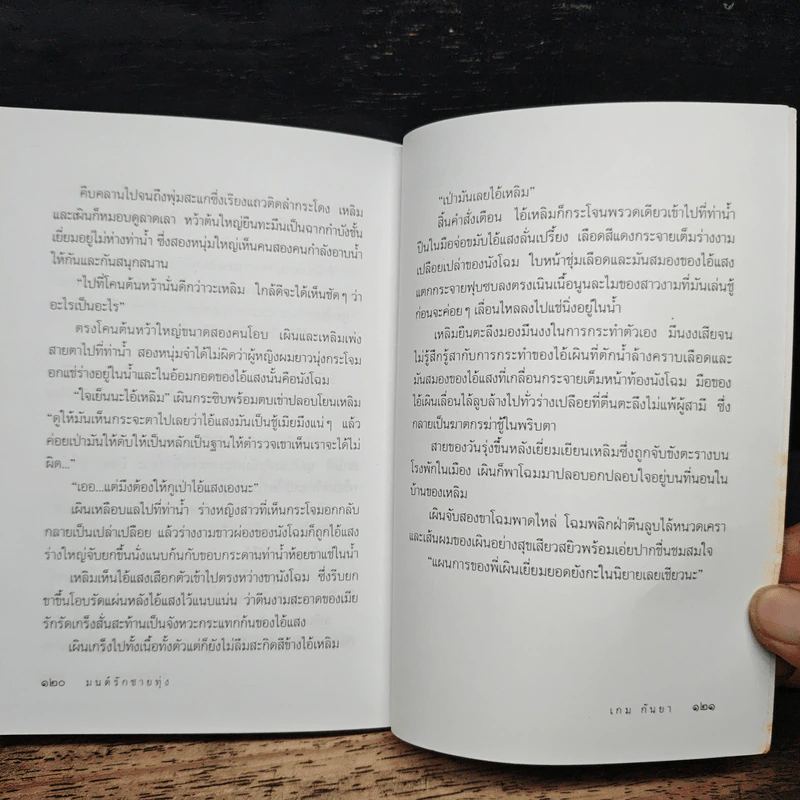 คืบคลานไปจนถึงพุ่มสะแกซึ่งเรียงแถวติดลำกระโดง เหลิม
และเผินก็หมอบดูลาดเลา หว้าต้นใหญ่ยืนทะมึนเป็นฉากกำบังชั้น
เยี่ยมอยู่ไม่ห่างท่าน้ำ ซึ่งสองหนุ่มใหญ่เห็นคนสองคนกำลังอาบน้ำ
ให้กันและกันสนุกสนาน
“ไปที่โคนต้นหว้านั่นดีกว่าวะเหลิม ใกล้ดีจะได้เห็นชัดๆ ว่า
อะไรเป็นอะไร”
ตรงโคนต้นหว้าใหญ่ขนาดสองคนโอบ เผินและเหลิมเพ่ง
สายตาไปที่ท่าน้ำ สองหนุ่มจำได้ไม่ผิดว่าผู้หญิงผมยาวนุ่งกระโจม
อกแช่ร่างอยู่ในน้ำและในอ้อมกอดของไอ้แสงนั้นคือนังโฉม
“ใจเย็นนะไอ้เหลิม” เผินกระซิบพร้อมตบเข่าปลอบโยนเหลิม
“ดูให้มันเห็นกระจะตาไปเลยว่าไอ้แสงมันเป็นชู้เมียมึงแน่ๆ แล้ว
ค่อยเป่ามันให้ดับให้เป็นหลักเป็นฐานให้ตำรวจเขาเห็นเราจะได้ไม่
ผิด...”
“เออ...แต่มึงต้องให้กูเป่าไอ้แสงเองนะ”
เผินเหลือบแลไปที่ท่าน้ำ ร่างหญิงสาวที่เห็นกระโจมอกกลับ
กลายเป็นเปล่าเปลือย แล้วร่างงามขาวผ่องของนังโฉมก็ถูกไอ้แสง
ร่างใหญ่จับยกขึ้นนั่งแนบกันกับขอบกระดานท่าน้ำห้อยขาแช่ในน้ำ
เหลิมเห็นไอ้แสงเสือกตัวเข้าไปตรงหว่างขานังโฉม ซึ่งรีบยก
ขาขึ้นโอบรัดแผ่นหลังไอ้แสงไว้แนบแน่น ว่าตีนงามสะอาดของเมีย
รักรัดเกร็งสั่นสะท้านเป็นจังหวะกระแทกกันของไอ้แสง
เผินเกร็งไปทั้งเนื้อทั้งตัวแต่ก็ยังไม่ลืมสะกิดสีข้างไอ้เหลิม
๑๒๐ มนต์รักชายทุ่ง
“เป่ามันเลยไอ้เหลิม”
สิ้นคำสั่งเตือน ไอ้เหลิมก็กระโจนพรวดเดียวเข้าไปที่ท่าน้ำ
ปืนในมือจ่อขมับไอ้แสงลั่นเปรี้ยง เลือดสีแดงกระจายเต็มร่างงาม
เปลือยเปล่าของนังโฉม ใบหน้าชุ่มเลือดและมันสมองของไอ้แสง
แตกกระจายฟุบซบลงตรงเนินเนื้อนูนละไมของสาวงามที่มันเล่นชู้
ก่อนจะค่อยๆ เลื่อนไหลลงไปแช่นิ่งอยู่ในน้ำ
เหลิมยืนตะลึงมองมึนงงในการกระทำตัวเอง มึนงงเสียจน
ไม่รู้สึกรู้สากับการกระทำของไอ้เผินที่ตักน้ำล้างคราบเลือดและ
มันสมองของไอ้แสงที่เกลื่อนกระจายเต็มหน้าท้องนังโฉม มือของ
ไอ้เผินเลื่อนไล้ลูบล้างไปทั่วร่างเปลือยที่ตื่นตะลึงไม่แพ้ผู้สามี ซึ่ง
กลายเป็นฆาตกรฆ่าชู้ในพริบตา
สายของวันรุ่งขึ้นหลังเยี่ยมเยียนเหลิมซึ่งถูกจับขังตะรางบน
โรงพักในเมือง เผินก็พาโฉมมาปลอบอกปลอบใจอยู่บนที่นอนใน
บ้านของเหลิม
เผินจับสองขาโฉมพาดไหล่ โฉมพลิกฝ่าตีนลูบไล้หนวดเครา
และเส้นผมของเผินอย่างสุขเสียวสยิวพร้อมเอ่ยปากชื่นชมสมใจ
“แผนการของพี่เผินเยี่ยมยอดยังกะในนิยายเลยเชียวนะ”
เกม กันยา ๑๒๑